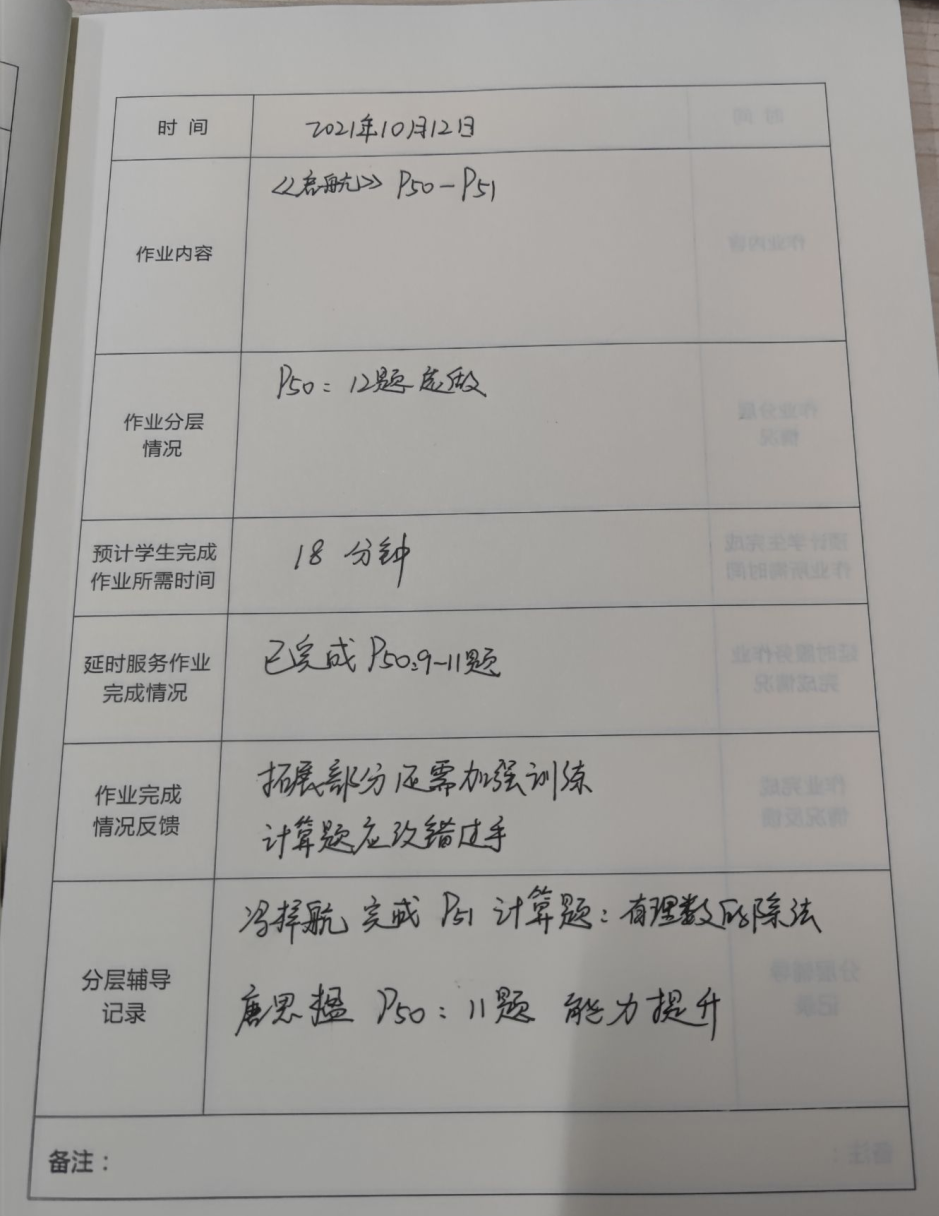 时 间
2021年10月12日
作业内容
《启航》 P50-P51
作业分层
情况
P50：12题选做
预计学生完成
作业所需时间
18 分钟
延时服务作业
完成情况
已完成 P50:9-11题
作业完成
情况反馈
拓展部分还需加强训练
计算题应改错过手
分层辅导
记录
冯梓航 完成 P51 计算题：有理数的除法
唐思 P50：11题 能力提升
备注：